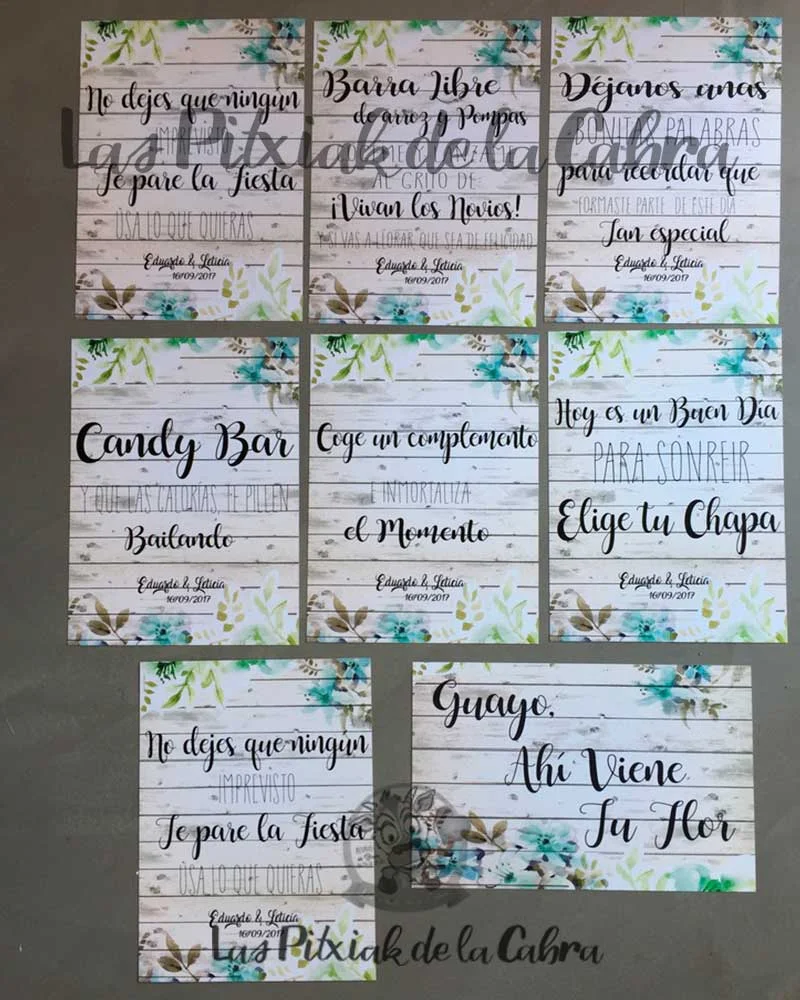 No dejes que ningún
IMPREVISTO
Te pare la Fiesta
USA LO QUE QUIERAS
Eduardo & Leticia
16/09/2017
Barra Libre
de arroz y Pompas
AL GRITO DE
¡Vivan los Novios!
Y SI VAS A LLORAR QUE SEA DE FELICIDAD
Eduardo & Leticia
16/09/2017
Déjanos unas
BONITAS PALABRAS
para recordar que
FORMASTE PARTE DE ESTE DÍA
Tan especial
Eduardo & Leticia
16/09/2017
Las Pitxiak de la Cabra
Candy Bar
Y QUE LAS CALORÍAS, TE PILLEN
Bailando
Eduardo & Leticia
16/09/2017
Coge un complemento
E INMORTALIZA
el Momento
Eduardo & Leticia
16/09/2017
Hoy es un Buen Día
PARA SONREIR
Elige tu Chapa
Eduardo & Leticia
16/09/2017
No dejes que ningún
IMPREVISTO
Te pare la Fiesta
USA LO QUE QUIERAS
Eduardo & Leticia
16/09/2017
Guayo,
Ahí Viene
Tu Flor
Las Pitxiak de la Cabra